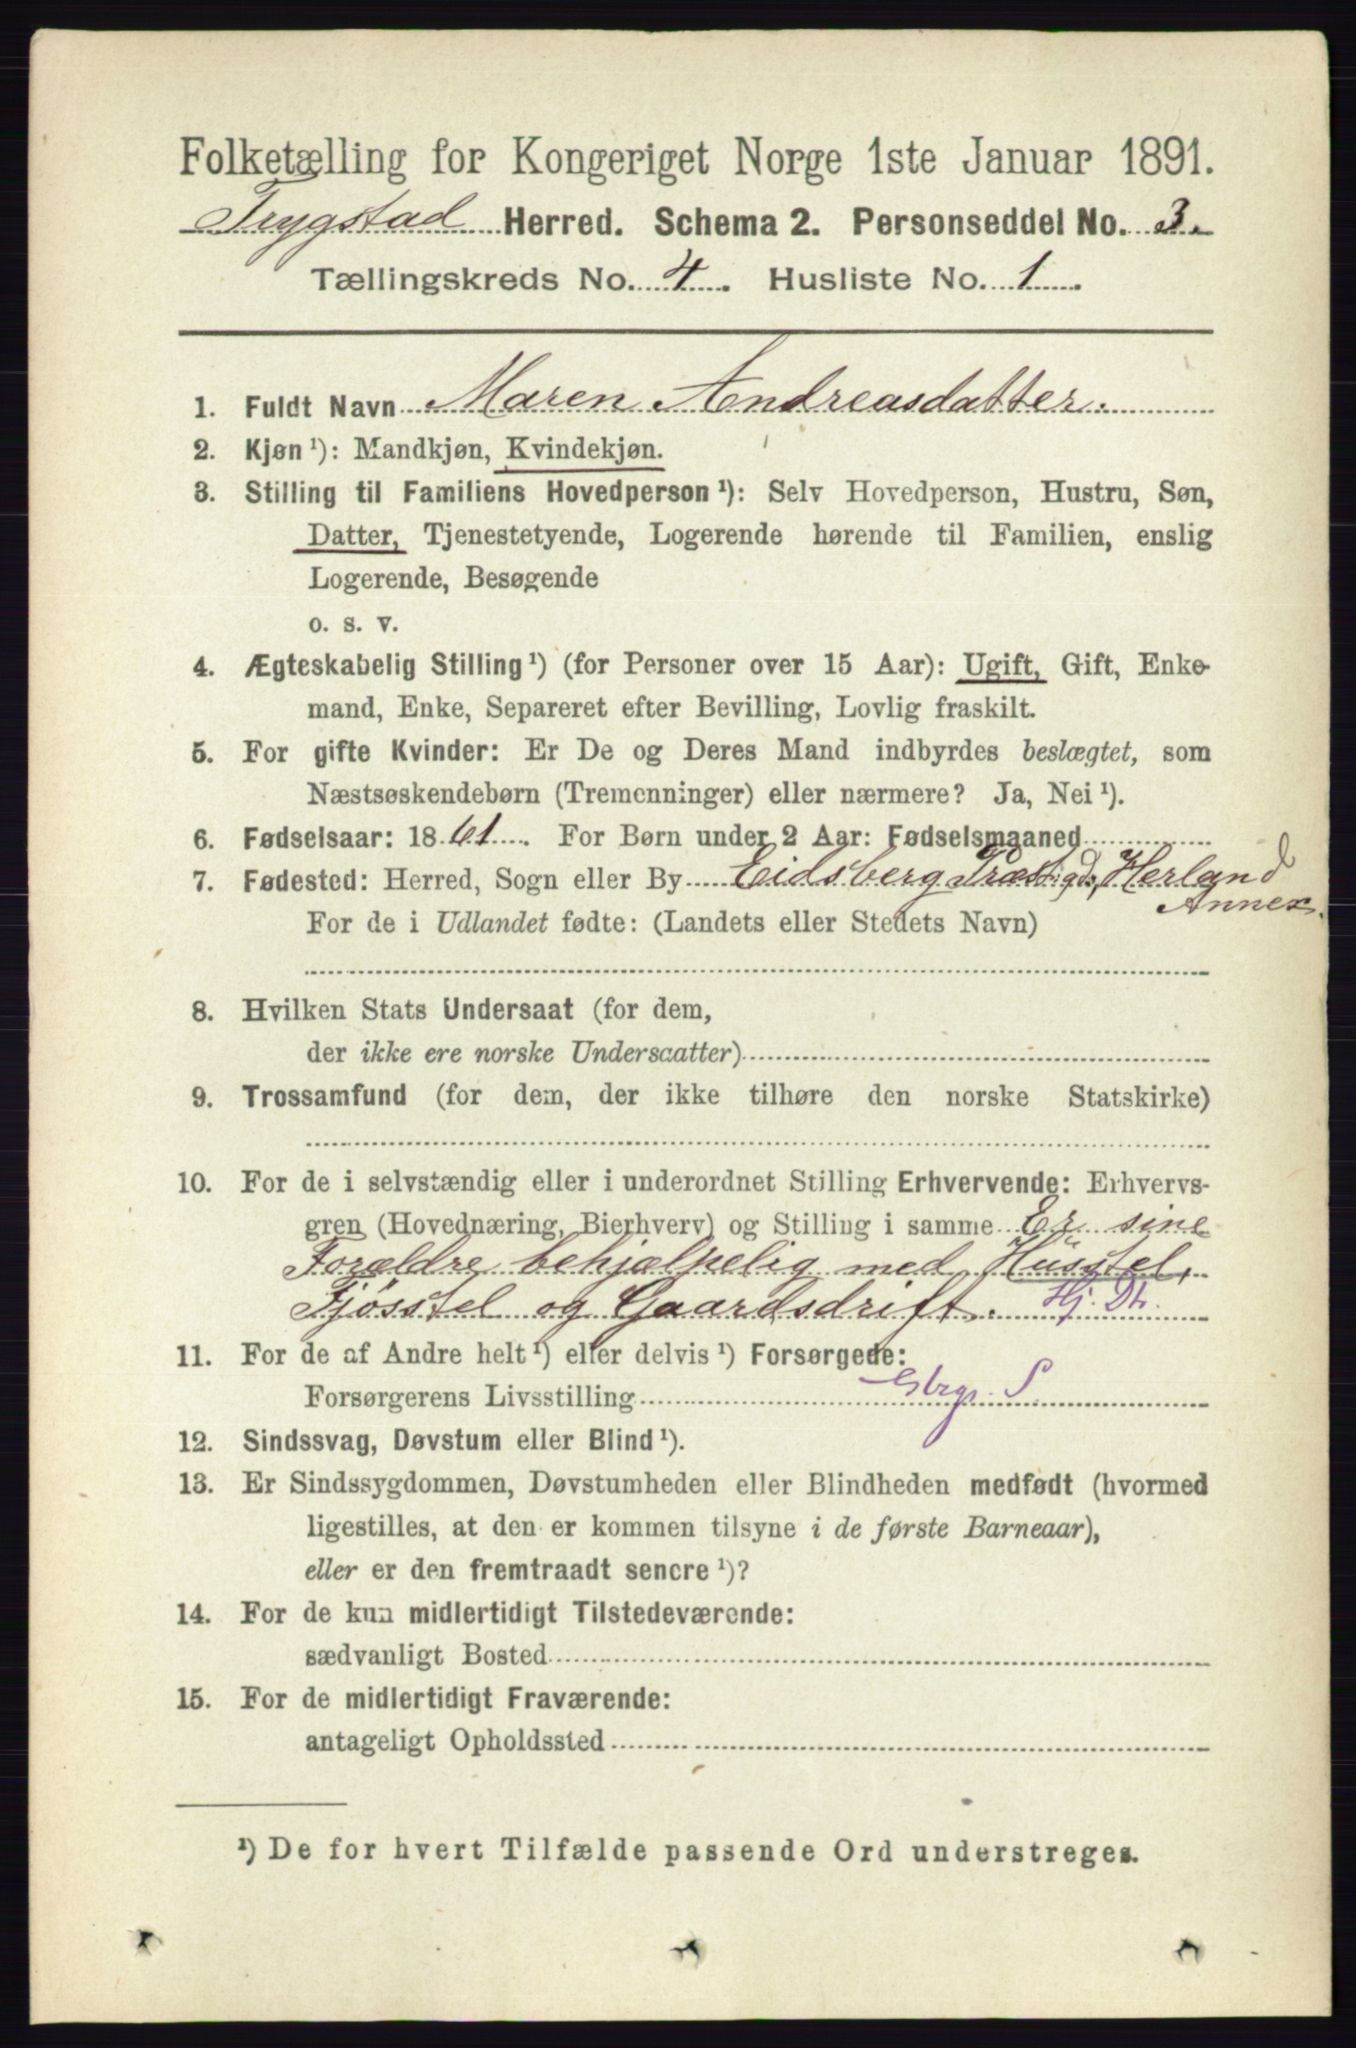 Folketælling for Kongeriget Norge 1ste Januar 1891.
Trygstad Herred. Schema 2. Personseddel No. 3.
Tællingskreds No. 4. Husliste No. 1.
1. Fuldt Navn Maren Andreasdatter.
2. Kjøn ¹): Mandkjøn, Kvindekjøn.
3. Stilling til Familiens Hovedperson ¹): Selv Hovedperson, Hustru, Søn,
Datter, Tjenestetyende, Logerende hørende til Familien, enslig
Logerende, Besøgende
o. s. v.
4. Ægteskabelig Stilling ¹) (for Personer over 15 Aar): Ugift, Gift, Enke-
mand, Enke, Separeret efter Bevilling, Lovlig fraskilt.
5. For gifte Kvinder: Er De og Deres Mand indbyrdes beslægtet, som
Næstsøskendebørn (Tremenninger) eller nærmere? Ja, Nei ¹).
6. Fødselsaar: 1861. For Børn under 2 Aar: Fødselsmaaned
7. Fødested: Herred, Sogn eller By Eidsberg Præstigd, Herland
Annex.
For de i Udlandet fødte: (Landets eller Stedets Navn)
8. Hvilken Stats Undersaat (for dem,
der ikke ere norske Undersaatter)
9. Trossamfund (for dem, der ikke tilhøre den norske Statskirke)
10. For de i selvstændig eller i underordnet Stilling Erhvervende: Erhvervs-
gren (Hovednæring, Bierhverv) og Stilling i samme Er sine
Forældre behjælpelig med Husstel,
Fjøsstel og Gaardsdrift. Hj. Dt.
11. For de af Andre helt ¹) eller delvis ¹) Forsørgede:
Forsørgerens Livsstilling Gbrgr. S
12. Sindssvag, Døvstum eller Blind ¹).
13. Er Sindssygdommen, Døvstumheden eller Blindheden medfødt (hvormed
ligestilles, at den er kommen tilsyne i de første Barneaar),
eller er den fremtraadt senere ¹)?
14. For de kun midlertidigt Tilstedeværende:
sædvanligt Bosted
15. For de midlertidigt Fraværende:
antageligt Opholdssted
¹) De for hvert Tilfælde passende Ord understreges.